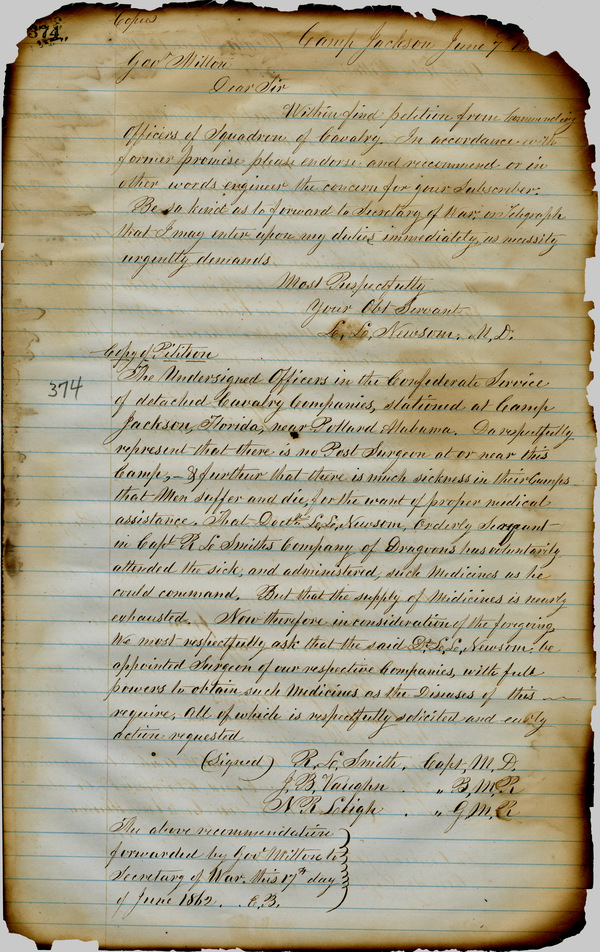 374
Copies
Camp Jackson June 7
Gov.r Milton
Dear Sir
Within find petition from Commanding
Officers of Squadron of Cavalry. In accordance with
former promise please endorse and recommend or in
other words engineer the concern for your Subscriber.
Be so kind as to forward to Secretary of War or Telegraph
that I may enter upon my duties immediately, as necessity
urgently demands
Most Respectfully
Your Obt Servant
L. L. Newsom, M. D.
Copy of Petition
374
The Undersigned Officers in the Confederate Service
of detached Cavalry Companies, stationed at Camp
Jackson, Florida, near Pollard Alabama. Do respectfully
represent that there is no Post Surgeon at or near this
Camp, – & furthur that there is much sickness in their Camps
that Men suffer and die, for the want of proper medical
assistance. That Doct.r L. L. Newsom, Orderly Sergeant
in Capt R L Smiths Company of Dragoons has voluntarily
attended the sick, and administered, such Medicines as he
could command. But that the supply of Medicines is nearly
exhausted. Now therefore in consideration of the foregoing
We most respectfully ask that the said Dr. L. L. Newsom, be
appointed Surgeon of our respective Companies, with full
powers to obtain such Medicines as the Diseases of this
require, All of which is respectfully solicited and early
action requested
(Signed) R. L. Smith, Capt, M. D.
J. B. Vaughn . " B, M, R
N R Leligh . " G M, R
The above recommendation
forwarded by Gov.r Milton to
Secretary of War, this 17th day
of June 1862. . E. B.